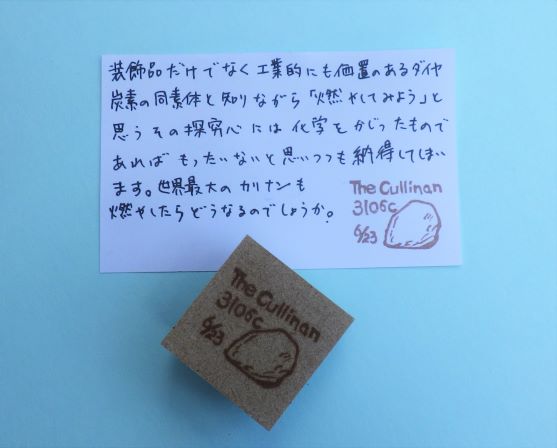 装飾品だけでなく工業的にも価置のあるダイヤ
炭素の同素体と知りながら「燃やしてみよう」と
思うその探究心には化学をかじったもので
あればもったいないと思いつつも納得してしまい
ます。世界最大のカリナンも
燃やしたらどうなるのでしょうか。
The Cullinan
3106c
6/23
The Cullinan
3106c
6/23